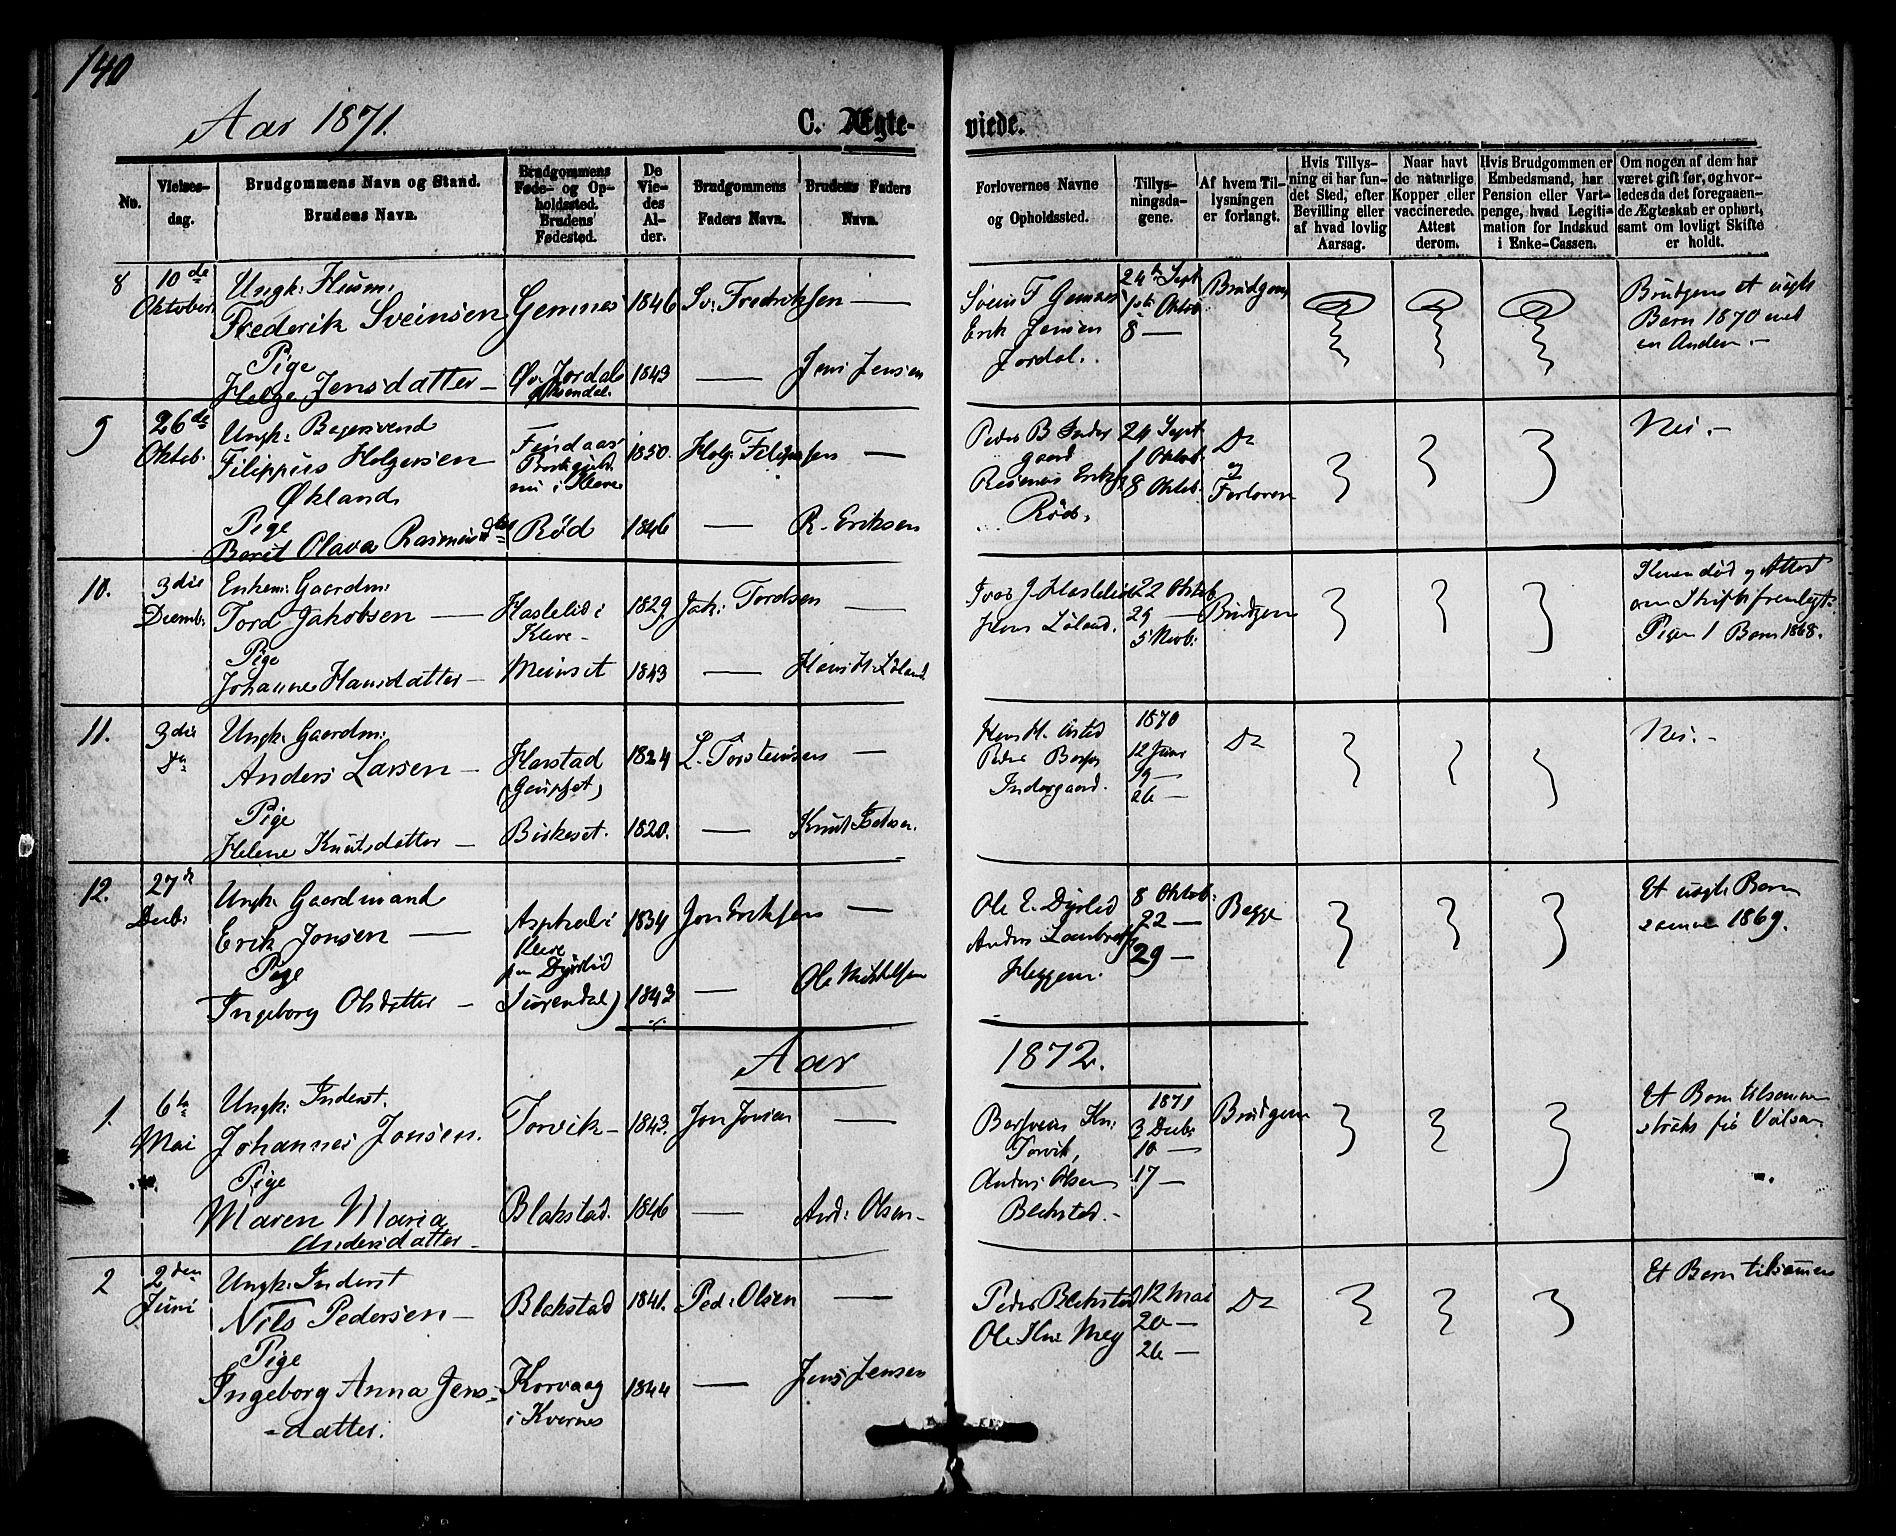 140
Aar 1871.
C. Ægteviede.
No.
Vielses-
dag.
Brudgommens Navn og Stand.
Brudens Navn.
Brudgommens
Føde- og Op-
holdssted.
Brudens
Fødested.
De
Vie-
des
Al-
der.
Brudgommens
Faders Navn.
Brudens Faders
Navn.
Forlovernes Navne
og Opholdssted.
Tillys-
ningsda-
gene.
Af hvem Til-
lysningen
er forlangt.
Hvis Tillys-
ning ei har fun-
det Sted, efter
Bevilling eller
af hvad lovlig
Aarsag.
Naar havt
de naturlige
Kopper eller
vaccinerede.
Attest
derom.
Hvis Brudgommen er
Embedsmand, har
Pension eller Vart-
penge, hvad Legiti-
mation for Indskud
i Enke-Cassen.
Om nogen af dem har
været gift før, og hvor-
ledes da det foregaaen-
de Ægteskab er ophørt,
samt om lovligt Skifte
er holdt.
8
10de
Oktober
Ungk: Husm:
Frederik Sveinsen
Gemnes
1846
Sv: Fredriksen
Pige
Helge Jensdatter
Øv: Jordal
Øksendal.
1843
Jens Jensen
Svein F Gemnes
Erik Jensen
Jordal.
24de Sept
1ste Oktob
8 —
Brudgom
Brudgom et uægte
Barn 1870 med
en Anden.
9
26de
Oktob.
Ungk: Bagersvend
Filippus Holgersen
Økland
1850.
Holg: Filipsen
Pige
Berit Olava Rasmusd
Rød
1846
R. Eriksen
Rasmus Eriks
Rød.
24 Sept
1 Oktob.
8 Oktob.
Do
og
Forlover
Nei.
10.
3die
Decemb.
Enkem: Gaardm:
Tord Jakobsen
Haslelid i
Kleve
1829.
Jak: Tordsen
Pige
Johanne Hansdatter
Meisset
1843
Hans H. Løland
Ivar J. Haslelid
Hans Løland.
22 Oktob
29 —
5 Novb.
Brudgom
Konen død og Attest
om Skifte fremlagt.
Pigen 1 Barn 1868.
11.
3die
Do
Ungk: Gaardm:
Anders Larsen
Harstad
1824
L. Torsteinsen
Pige
Helene Knutsdatter
Birkeset.
1820.
Indergaard.
1870
12 Juni
19 —
26 —
Do
Nei.
12.
27de
Decb.
Ungk: Gaardmand
Erik Jonsen
Asphol i
Kleve
1834
Jon Eriksen
Pige
Ingeborg Olsdatter
Surendal)
1843
Ole Mikkelsen
Ole E. Dyrlid
Heggem.
8 Oktob.
22 —
29 —
Begge
Et uægte Barn
sammen 1869.
Aar 1872.
1.
6te
Mai
Ungk: Inderst.
Johannes Jonsen.
Torvik
1843.
Jon Jonsen
Pige
Maren Maria
Andersdatter
Blakstad.
1846
And: Olsen
Torvik,
Anders Olsen
Blakstad.
1871
3 Decb
10 —
17 —
Brudgom
Et Barn tilsammen
strax før Vielsen
2
2den
Juni
Ungk: Inderst
Nils Pedersen
Blakstad
1841.
Ped: Olsen
Pige
Ingeborg Anna Jens-
datter.
Korvaag
i Kvernes
1844
Jens Jensen
Peder Blakstad
12 Mai
20 —
26 —
Do
Et Barn tilsammen